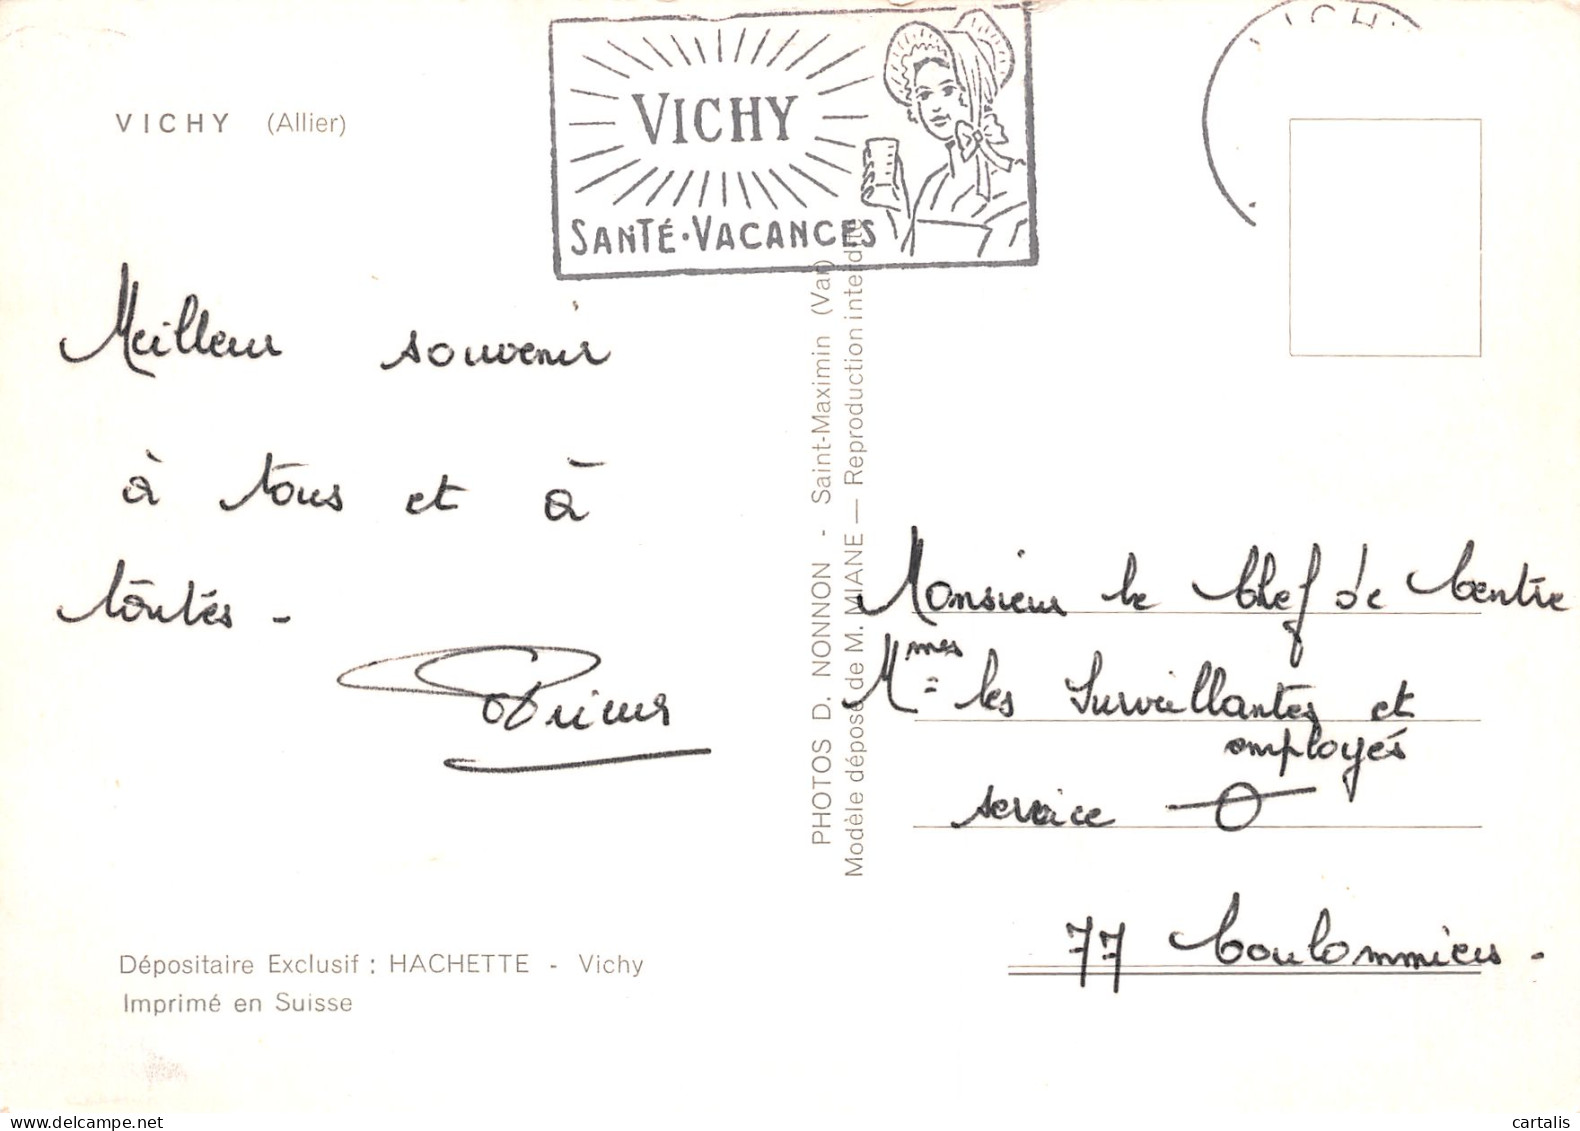 VICHY (Allier)
VICHY
SANTÉ·VACANCES
Meilleur souvenir
à tous et à
toutes -
Dépositaire Exclusif : HACHETTE - Vichy
Imprimé en Suisse
PHOTOS D. NONNON - Saint-Maximin (Var)
Modèle déposé de M. MIANE — Reproduction interdite
Monsieur le Chef de Centre
Mmes les Surveillantes et
employés
service
77 Coulommiers -
cartalis